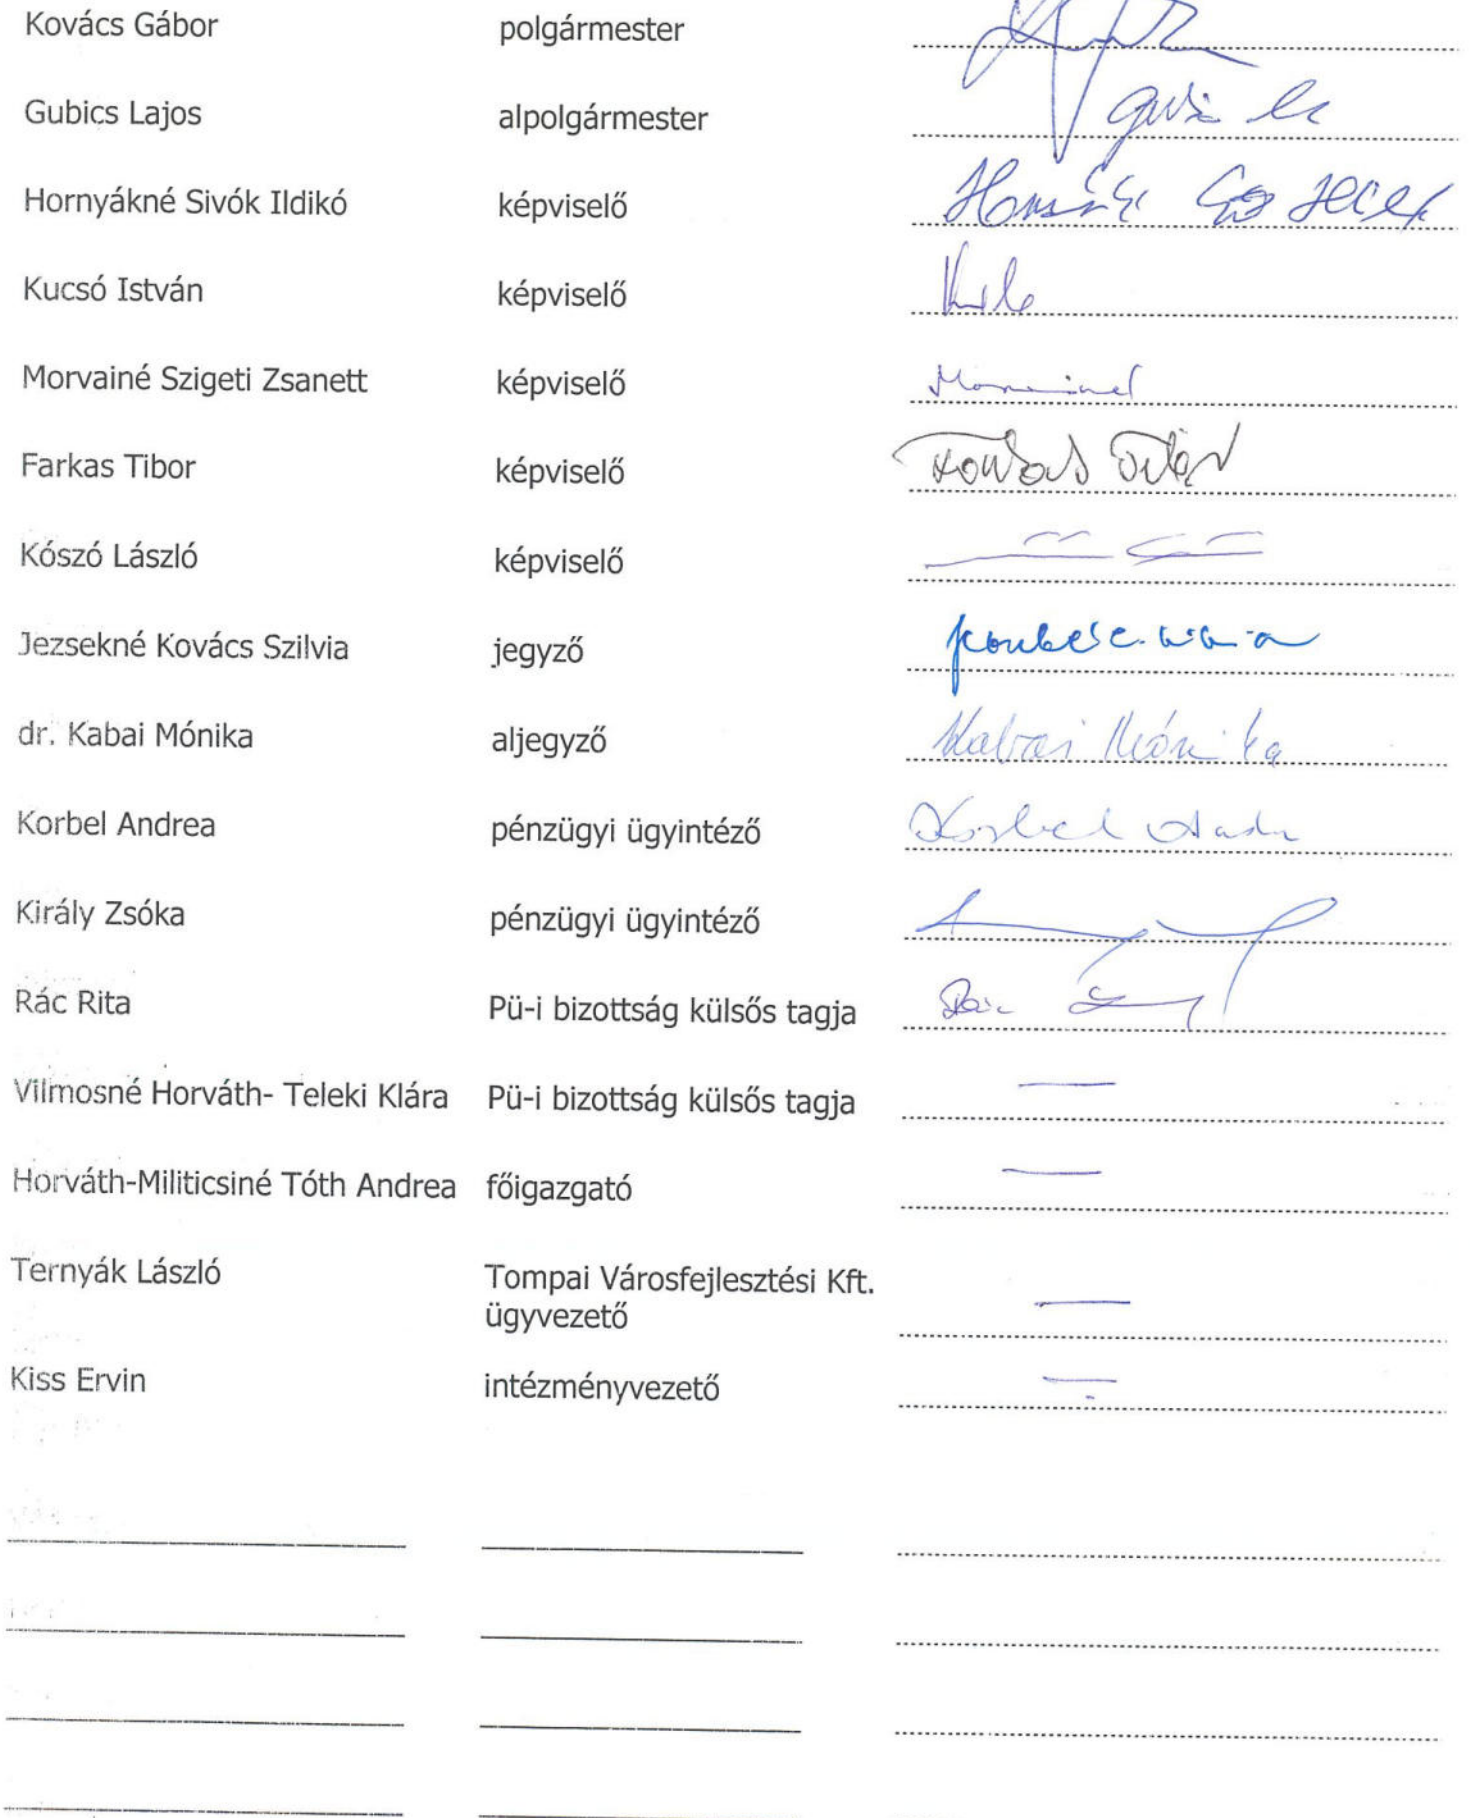 Kovács Gábor polgármester
Gubics Lajos alpolgármester
Hornyákné Sivók Ildikó képviselő
Kucsó István képviselő
Morvainé Szigeti Zsanett képviselő
Farkas Tibor képviselő
Kószó László képviselő
Jezsekné Kovács Szilvia jegyző
dr. Kabai Mónika aljegyző Kabai Mónika
Korbel Andrea pénzügyi ügyintéző Korbel
Király Zsóka pénzügyi ügyintéző
Rác Rita Pü-i bizottság külsős tagja
Vilmosné Horváth- Teleki Klára Pü-i bizottság külsős tagja —
Horváth-Militicsiné Tóth Andrea főigazgató —
Ternyák László Tompai Városfejlesztési Kft.
ügyvezető —
Kiss Ervin intézményvezető —